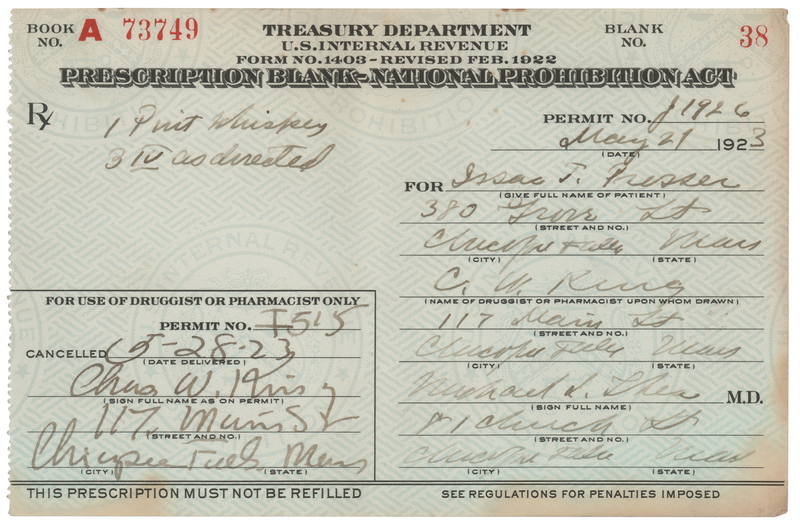 BOOK NO. A 73749
TREASURY DEPARTMENT
U.S. INTERNAL REVENUE
FORM NO. 1403 - REVISED FEB. 1922
BLANK NO. 38
PRESCRIPTION BLANK - NATIONAL PROHIBITION ACT
Rx
1 Pint Whiskey
3 IV as directed
PERMIT NO. J1926
May 21 1923
(DATE)
FOR Issac T. Prosser
(GIVE FULL NAME OF PATIENT)
380 Grove St
(STREET AND NO.)
Chicopee Falls Mass
(CITY) (STATE)
C. W. King
(NAME OF DRUGGIST OR PHARMACIST UPON WHOM DRAWN)
117 Main St
(STREET AND NO.)
Chicopee Falls Mass
(CITY) (STATE)
Michael S. M.D.
(SIGN FULL NAME)
Church St
(STREET AND NO.)
Chicopee Falls Mass
(CITY) (STATE)
FOR USE OF DRUGGIST OR PHARMACIST ONLY
PERMIT NO. I 515
CANCELLED 5-28-23
(DATE DELIVERED)
Chas W. King
(SIGN FULL NAME AS ON PERMIT)
117 Main St
(STREET AND NO.)
Chicopee Falls Mass
(CITY) (STATE)
THIS PRESCRIPTION MUST NOT BE REFILLED
SEE REGULATIONS FOR PENALTIES IMPOSED